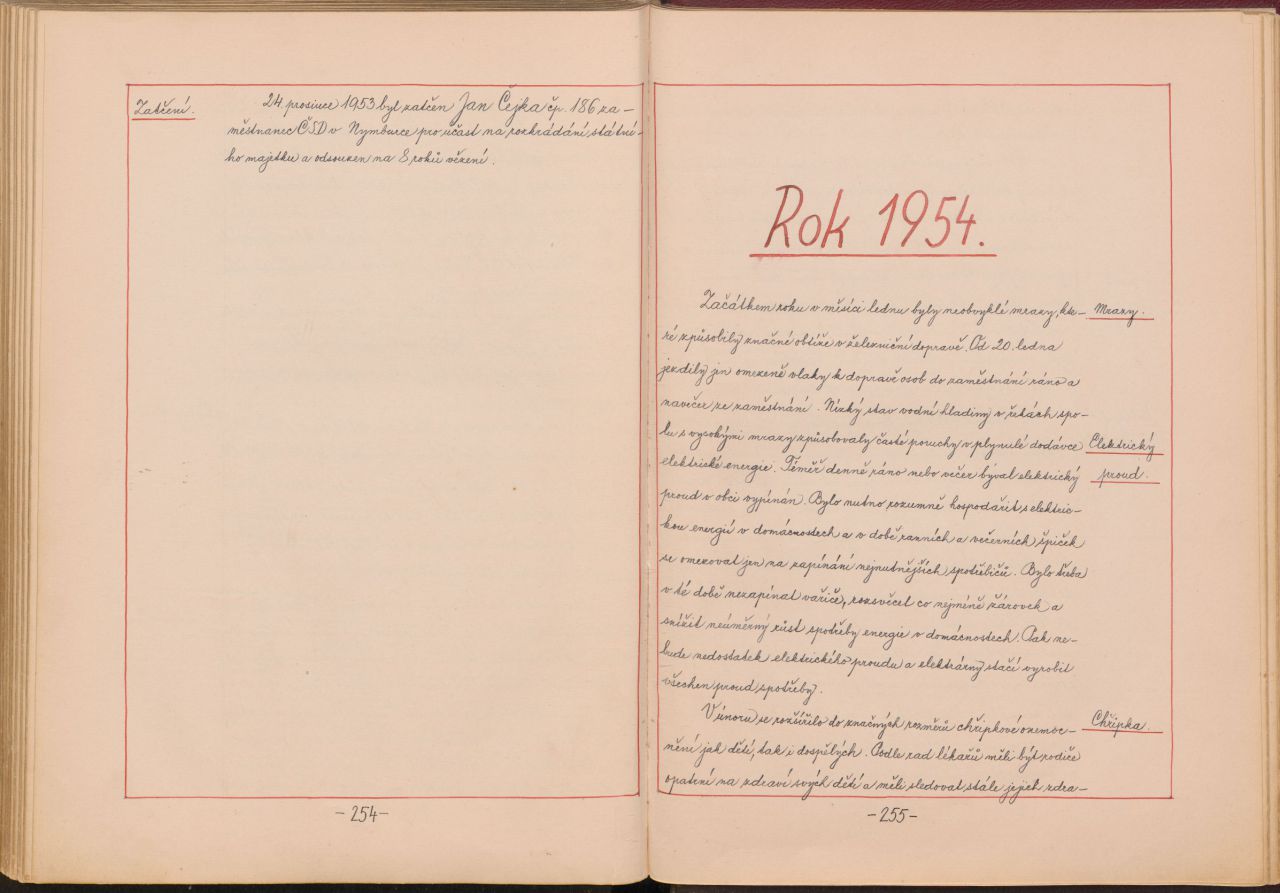 Zatčení.
24. prosince 1953 byl zatčen Jan Čejka čp. 186 za-
městnanec ČSD v Nymburce pro účast na rozkrádání státní-
ho majetku a odsouzen na 8 roků vězení.
-254-
Rok 1954.
Začátkem roku v měsíci lednu byly neobvyklé mrazy, kte-
Mrazy.
ré způsobily značné obtíže v železniční dopravě. Od 20. ledna
jezdily jen omezeně vlaky k dopravě osob do zaměstnání ráno a
navečer ze zaměstnání. Nízký stav vodní hladiny v řekách spo-
lu s vysokými mrazy způsobovaly časté poruchy v plynulé dodávce
Elektrický
elektrické energie. Téměř denně ráno nebo večer býval elektrický
proud.
proud v obci vypínán. Bylo nutno rozumně hospodařit s elektric-
kou energií v domácnostech a v době ranních a večerních špiček
se omezovat jen na zapínání nejnutnějších spotřebičů. Bylo třeba
v té době nezapínat vařiče, rozsvěcet co nejméně žárovek a
snížit neúměrný růst spotřeby energie v domácnostech. Pak ne-
bude nedostatek elektrického proudu a elektrárny stačí vyrobit
všechen proud spotřeby.
V únoru se rozšířilo do značných rozměrů chřipkové onemoc-
Chřipka.
nění jak dětí, tak i dospělých. Podle rad lékařů měli být rodiče
opatrní na zdraví svých dětí a měli sledovat stále jejich zdra-
-255-